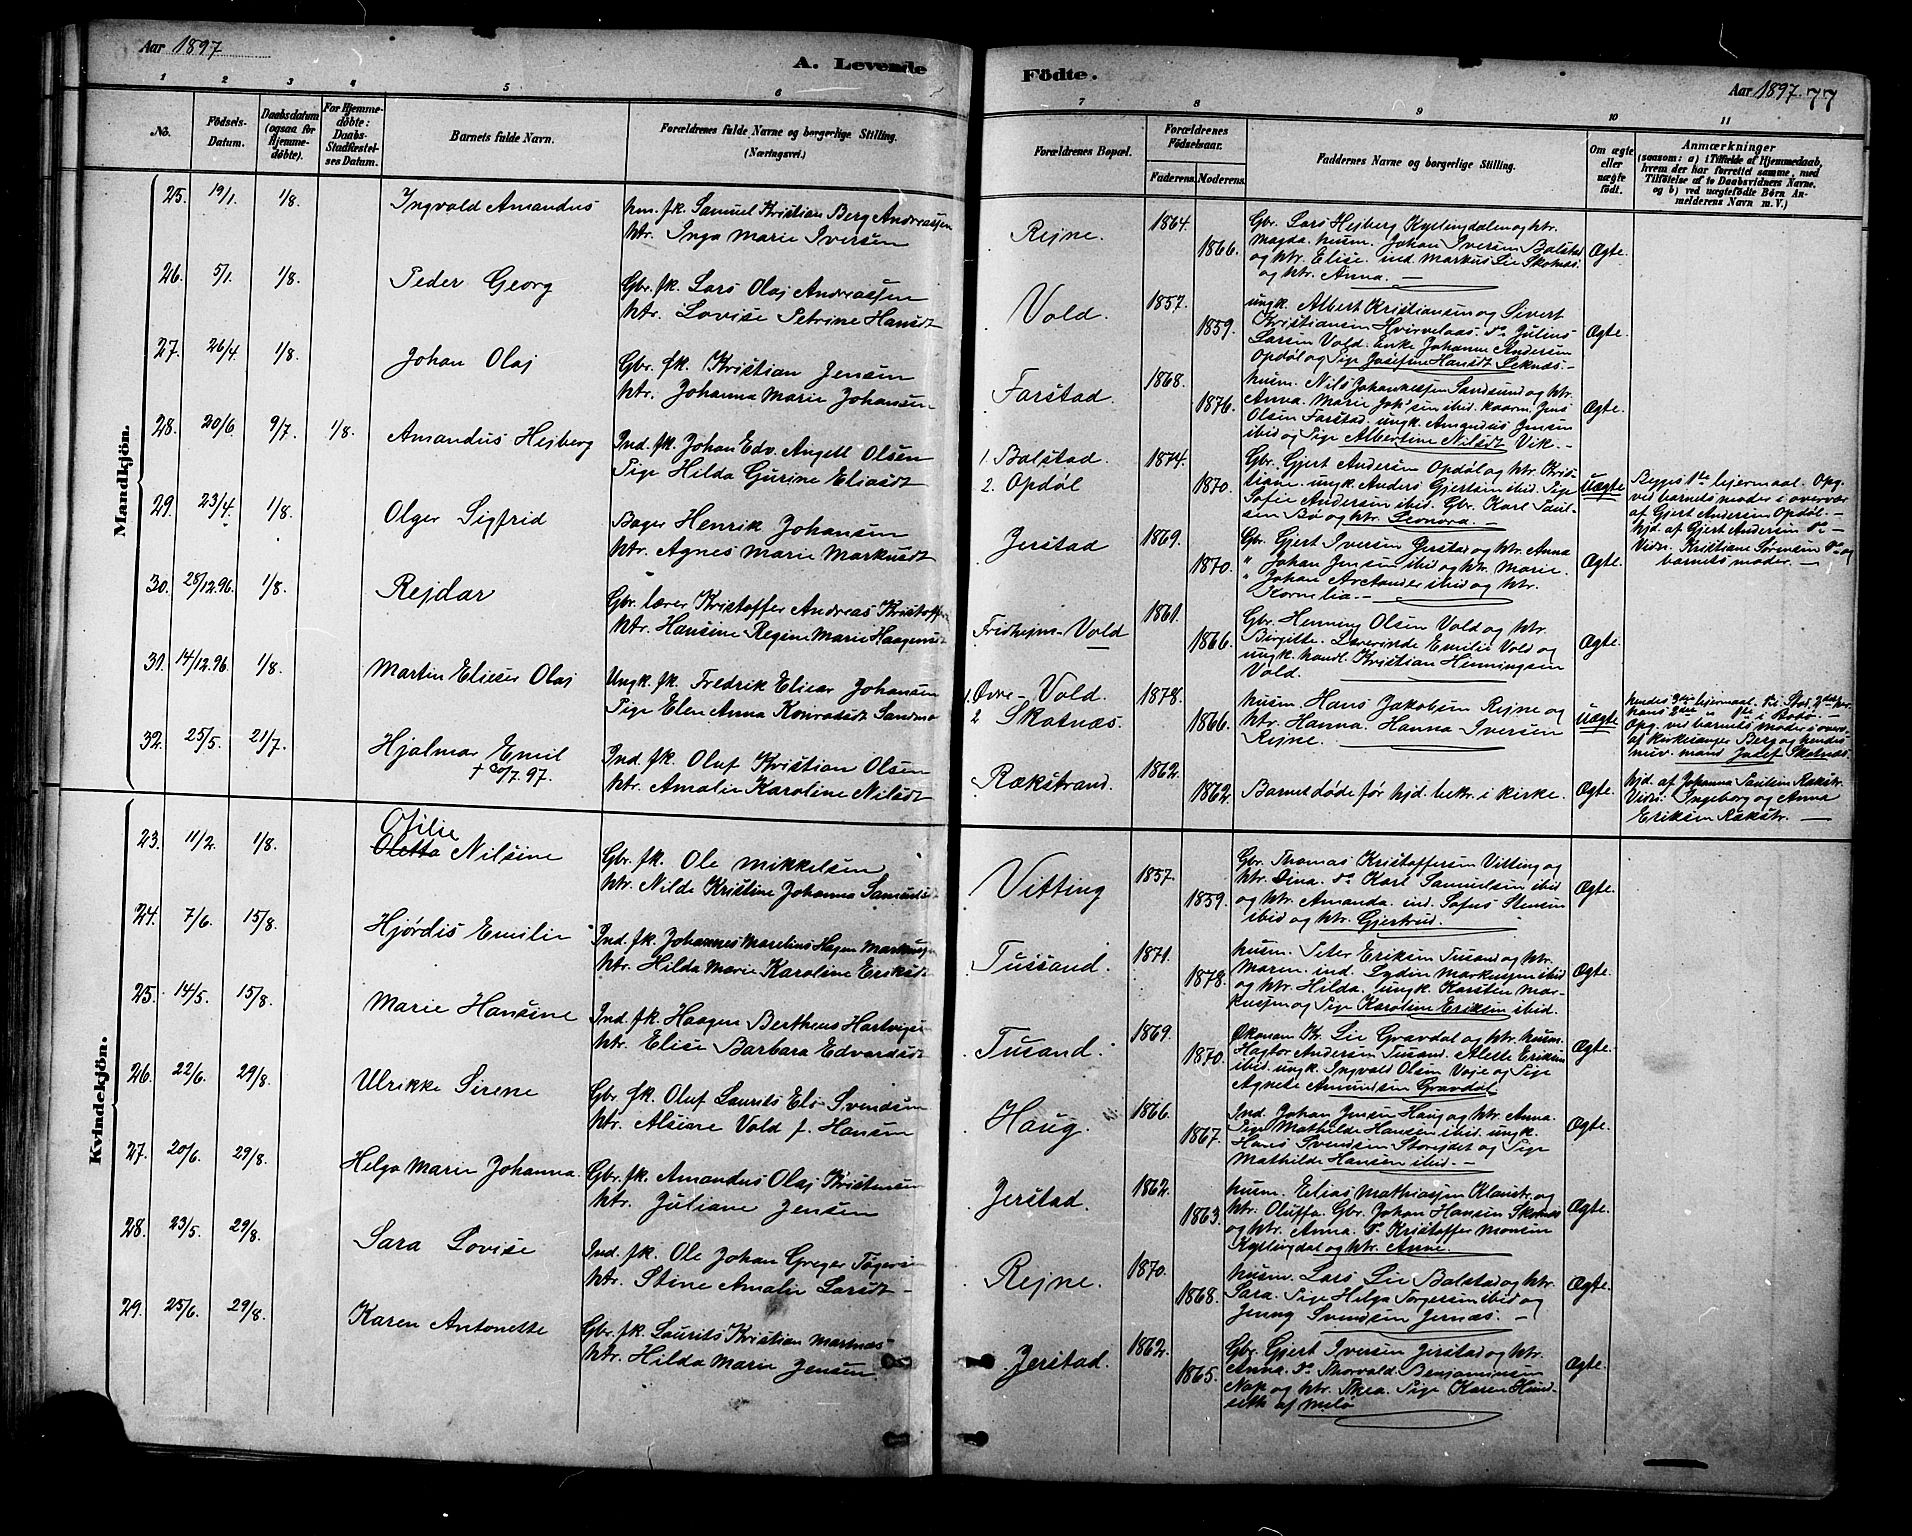 Aar 1897
A. Levende
1 2 3 4 5 6
No.
Födsels-Datum.
Daabsdatum (ogsaa for Hjemmedöbte).
For Hjemmedöbte: Daabs-Stadfæstelses Datum.
Barnets fulde Navn.
Forældrenes fulde Navne og borgerlige Stilling.
(Næringsvei.)
Mandkjön.
25. 19/1. 1/8. Ingvald Amandus
hm. fk. Samuel Kristian Berg Andreassen
htr. Inga Marie Iversen
26. 5/1. 1/8. Peder Georg
Gbr. fk. Lars Olaj Andreassen
htr. Lovise Petrine Hansdt
27. 26/4. 1/8. Johan Olaj
Gbr. fk. Kristian Jensen
htr. Johanna Marie Johansen
28. 20/6. 9/7. 1/8. Amandus Hejberg
Ind. fk. Johan Edv. Angell Olsen
Pige Hilda Gurine Eliasdt
29. 23/4. 1/8. Olger Sigfrid
Bager Henrik Johansen
htr. Agnes Marie Markusdt
30. 28/12.96. 1/8. Rejdar
Gbr. lærer Kristoffer Andreas Kristoffe
htr. Hansine Regine Marie Haagensdt
31. 14/12.96. 1/8. Martin Elieser Olaj
Ungk. fk. Fredrik Eliear Johansen
Pige Elen Anna Konradsdt Sandmo
32. 25/5. 21/7. Hjalmar Emil
+ 30/7.97.
Ind. fk. Oluf Kristian Olsen
htr. Amalie Karoline Nilsdt
Kvindekjön.
Ofilie
23. 11/2. 1/8. Oletta Nilsine
Gbr. fk. Ole Mikkelsen
htr. Nilde Kristine Johanna Samuelsdt
24. 7/6. 15/8. Hjørdis Emilie
Ind. fk. Johannes Marelius Hagen Markussen
htr. Hilda Marie Karoline Eriksdt
25. 14/5. 15/8. Marie Hansine
Ind. fk. Haagen Bertheus Hartvigs
htr. Elise Barbara Edvardsdt
26. 22/6. 29/8. Ulrikke Sirene
Gbr. fk. Oluf Laurits Elo Svendsen
htr. Alsine Vold f. Hansen
27. 20/6. 29/8. Helga Marie Johanna.
Gbr. fk. Amandus Olaj Kristensen
htr. Juliane Jensen
28. 23/5. 29/8. Sara Lovise
Ind. fk. Ole Johan Greger Tøgers
htr. Stine Amalie Larsdt
29. 25/6. 29/8. Karen Antonette
Gbr. fk. Laurits Kristian Martnes
htr. Hilda Marie Jensen.
Födte.
Aar 1897. 77
7 8 9 10 11
Forældrenes Bopæl.
Forældrenes Födselsaar.
Faderens. Moderens.
Faddernes Navne og borgerlige Stilling.
Om ægte eller uægte födt.
Anmærkninger
(saasom: a) i Tilfælde af Hjemmedaab, hvem der har forrettet samme, med Tilföielse af to Daabsvidners Navne. og b) ved uægtefödte Börn Anmelderens Navn m. V.)
Rejne. 1864. 1866.
Gbr. Lars Hejberg Kyllingdalen og htr.
Magda. husm. Johan Iversen Balstad
og htr. Elise. ind. Markus Lie Skotnæs.
og htr. Anna.
Ægte.
Vold. 1857. 1859.
ungk. Albert Kristiansen og Severt
Kristiansen Hvirvelaas. do Julius
Larsen Vold. Enke Johanne Andersen
Opdøl og Pige Josefine Hansdt Leknæs.
Ægte.
Farstad 1868. 1876.
husm. Nils Johannessen Sandsund og htr.
Anna. Marie Joh'sen ibid. kaarm. Jens
Olsen Farstad. ungk. Amandus Jensen
ibid og Pige Albertine Nilsdt Vik.
Ægte.
1. Balstad. 1874.
2. Opdøl 1870.
Gbr. Gjert Andersen Opdøl og htr. Kris-
tiane. ungk. Anders Gjertsen ibid. Pige
Sofie Andersen ibid. Gbr. Karl Paul-
sen Bø og htr. Leonora.
uægte
Begges 1ste lejermaal. Opg.
ved barnets moder i overvær
af Gjert Andersen Opdøl.
hjd. af Gjert Andersen do
Vidn. Kristiane Sørensen do og
barnets moder.
Jerstad 1869. 1870.
Gbr. Gjert Iversen Jerstad og htr. Anna
" Johan Jensen ibid og htr. Marie.
" Johan Arctander ibid og htr.
Kornelia.
Ægte.
Fridheim-Vold 1861. 1866.
Gbr. Henning Olsen Vold og htr.
Birgitte. Lærerinde Emilie Vold og
ungk. handl. Kristian Henningsen
Vold.
Ægte.
1. Øvre-Vold. 1878.
2 Skotnæs. 1866.
husm. Hans Jakobsen Rejne og
htr. Hanna. Hanna Iversen
Rejne.
uægte
Opg. ved barnets moder i overv.
af kirkesanger Berg og hendes
nuv. mand Josef Skotnæs.
Rækstrand. 1862. 1862.
Barnet døde før hjd. bekr. i kirke.
Ægte.
hjd. af Johanna Paulsen Rækstr.
Vidn: Ingeborg og Anna
Eriksen Rækstr.
Vitting 1857. 1859.
Gbr. Thomas Kristoffersen Vitting og
htr. Dina. do Karl Samuelsen ibid
og htr. Amanda. ind. Sofus Stensen
ibid og htr. Gjertrud.
Ægte.
Tussand. 1871. 1878.
husm. Peter Eriksen Tusand og htr.
Maren. ind. Lydin Markussen ibid
og htr. Hilda. ungk. Karsten Mar-
kussen og Pige Karoline Eriksen ibid.
Ægte.
Tusand. 1869. 1870.
Økonom Kr. Lie Gravdal og husm.
Hagtor Andersen Tusand. Alette Eriksen
ibid. ungk. Ingvald Olsen Voje og Pige
Agnete Amundsen Gravdal.
Ægte.
Haug. 1866. 1867.
Ind. Johan Jensen Haug og htr. Anna.
Pige Mathilde Hansen ibid. ungk.
Hans Svendsen Storejdet og Pige
Mathilde Hansen ibid.
Ægte.
Jerstad. 1862. 1863.
husm. Elias Mathiassen Klaustr. og
htr. Oluffa. Gbr. Johan Hansen Skotnæs
og htr. Anna. do Kristoffer Monsen
Kyllingdal og htr. Anne.
Ægte.
Rejne. 1870. 1868.
husm. Lars Lie Balstad og htr.
Sara. Pige Helga Torgersen ibid og
Jenny Svendsen Jernæs.
Ægte.
Jerstad. 1862. 1865.
Gbr. Gjert Iversen Jerstad og htr.
Anna. do Thorvald Benjaminsen
Nap og htr. Thea. Pige Karen Hund-
seth af Melø
Ægte.